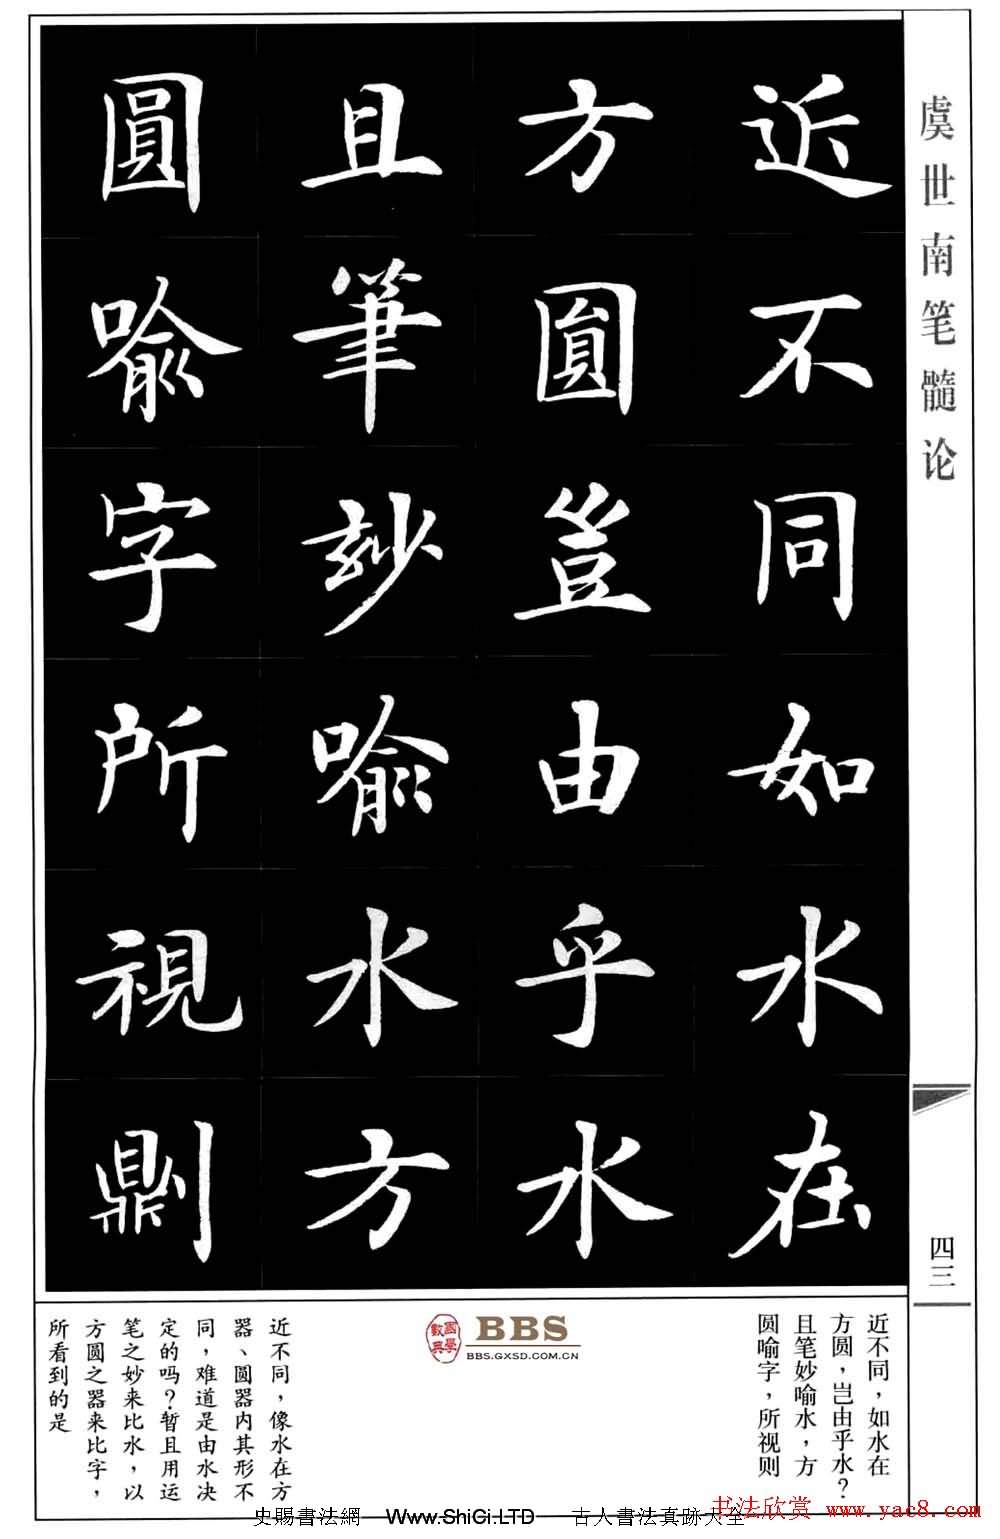 虞世南笔髓论
近不同如水在
方圓豈由乎水
且筆妙喻水方
圓喻字所視鼎刂
四三
近不同，如水在
方圆，岂由乎水？
且笔妙喻水，方
圆喻字，所视则
國學數典
BBS
BBS.GXSD.COM.CN
近不同，像水在方
器、圆器内其形不
同，难道是由水决
定的吗？暂且用运
笔之妙来比水，以
方圆之器来比字，
所看到的是
史賜書法網 Www.ShiCi.LTD 古人書法真跡大全
书法欣赏 www.yac8.com